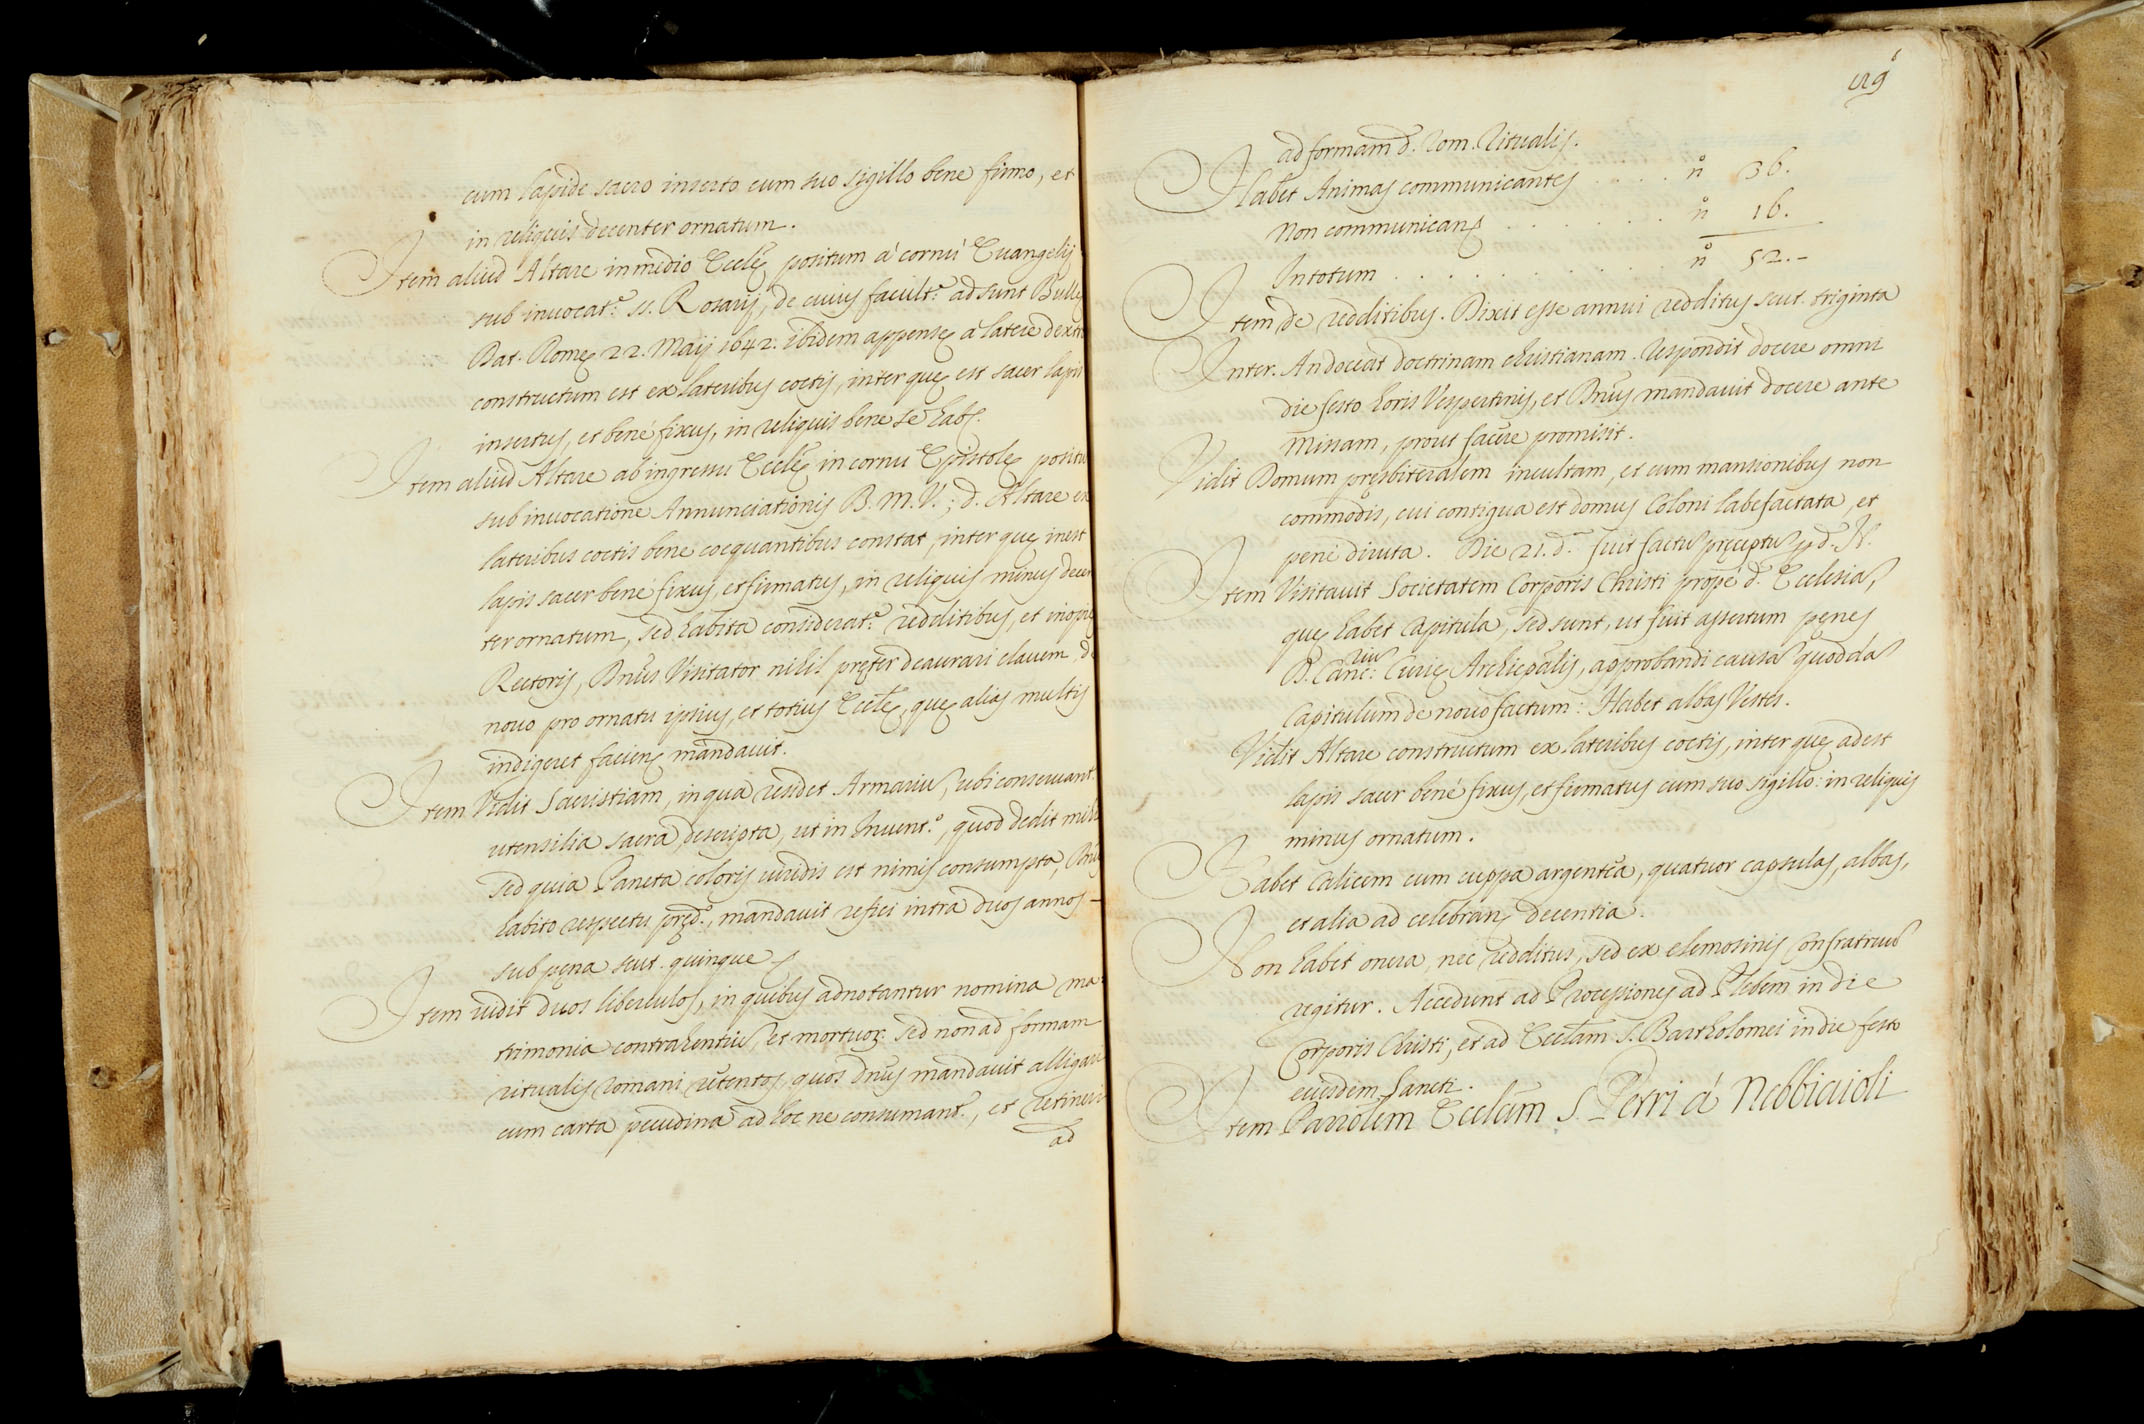 cum lapide sacro inserto cum suo sigillo bene firmo, et
in reliquis decenter ornatum.
Item aliud Altare in medio Eccle̜ positum à cornu Euangelij
sub inuocat.e ss. Rosarij, de cuius facult.e adsunt Bulle̜
Dat. Rome̜ 22. Maij 1642. ibidem appense̜ a latere dextro
constructum est ex lateribus coctis, inter que̜ est sacer lapis
insertus, et bene fixus, in reliquis bene se habet.
Item aliud Altare ab ingressu Eccle̜ in cornu Epistole̜ positu
sub inuocatione Annunciationis B. M. V.; d. Altare ex
lateribus coctis bene coequantibus constat, inter que̜ inest
lapis sacer bene fixus, et firmatus, in reliquis minus decen
ter ornatum, sed habita considerat.e redditibus, et inopia
Rectoris, Dnus Visitator nihil pre̜ter deaurari clauem, de
nouo pro ornatu ipsius, et totius Eccle̜, que̜ alias multis
indigeret faciend mandauit.
Item Vidit Sacristiam, in qua residet Armariu, ubi conseruant.
utensilia sacra descripta, ut in Inuent.o, quod dedit mihi
sed quia Planeta coloris uiridis est nimis consumpta, Dnus
habito respectu pre̜d.o, mandauit refici intra duos annos -
sub pe̜na scut. quinque
Item uidit duos liberculos, in quibus adnotantur nomina ma=
trimonia contrahentiu, et mortuor. sed non ad formam
ritualis romani retentos, quos Dnus mandauit alligari
cum carta pecudina ad hoc ne consumant., et retineri
ad
519
ad formam d. Rom. Ritualis.
Habet Animas communicantes . . . . n.o 36.
Non communicant . . . . . . n.o 16.
In totum . . . . . . . . . n.o 52.-
Item de redditibus. Dixit esse annui redditus scut. triginta
Inter. An doceat doctrinam christianam. respondit docere omni
die festo horis Vespertinis, et Dnus mandauit docere ante
Missam, prout facere promisit.
Vidit Domum presbiteralem incultam, et cum mansionibus non
commodis, cui contigua est domus Coloni labefactata, et
penè diruta. Die 21. d. fuit factu pre̜ceptu p d. N.
Item Visitauit Societatem Corporis Christi prope d. Ecclesia,
que̜ habet Capitula, sed sunt, ut fuit assertum pe̜nes
D. Canc:rium Curie̜ Archiepalis, approbandi causa quodda
Capitulum de nouo factum: Habet albas Vestes.
Vidit Altare constructum ex lateribus coctis, inter que̜ adest
lapis sacer bené fixus, et firmatus cum suo sigillo: in reliquis
minus ornatum.
Habet Calicem cum cuppa argentea, quatuor capsulas, albas,
et alia ad celebrand decentia.
Non habet onera, nec redditus, sed ex elemosinis Confratrum
regitur. Accedunt ad Processiones ad Plebem in die
Corporis Christi, et ad Ecclam S. Bartholomei in die festo
eiusdem Sancti.
Item Parrolem Ecclam S. Petri à Nebbiaioli